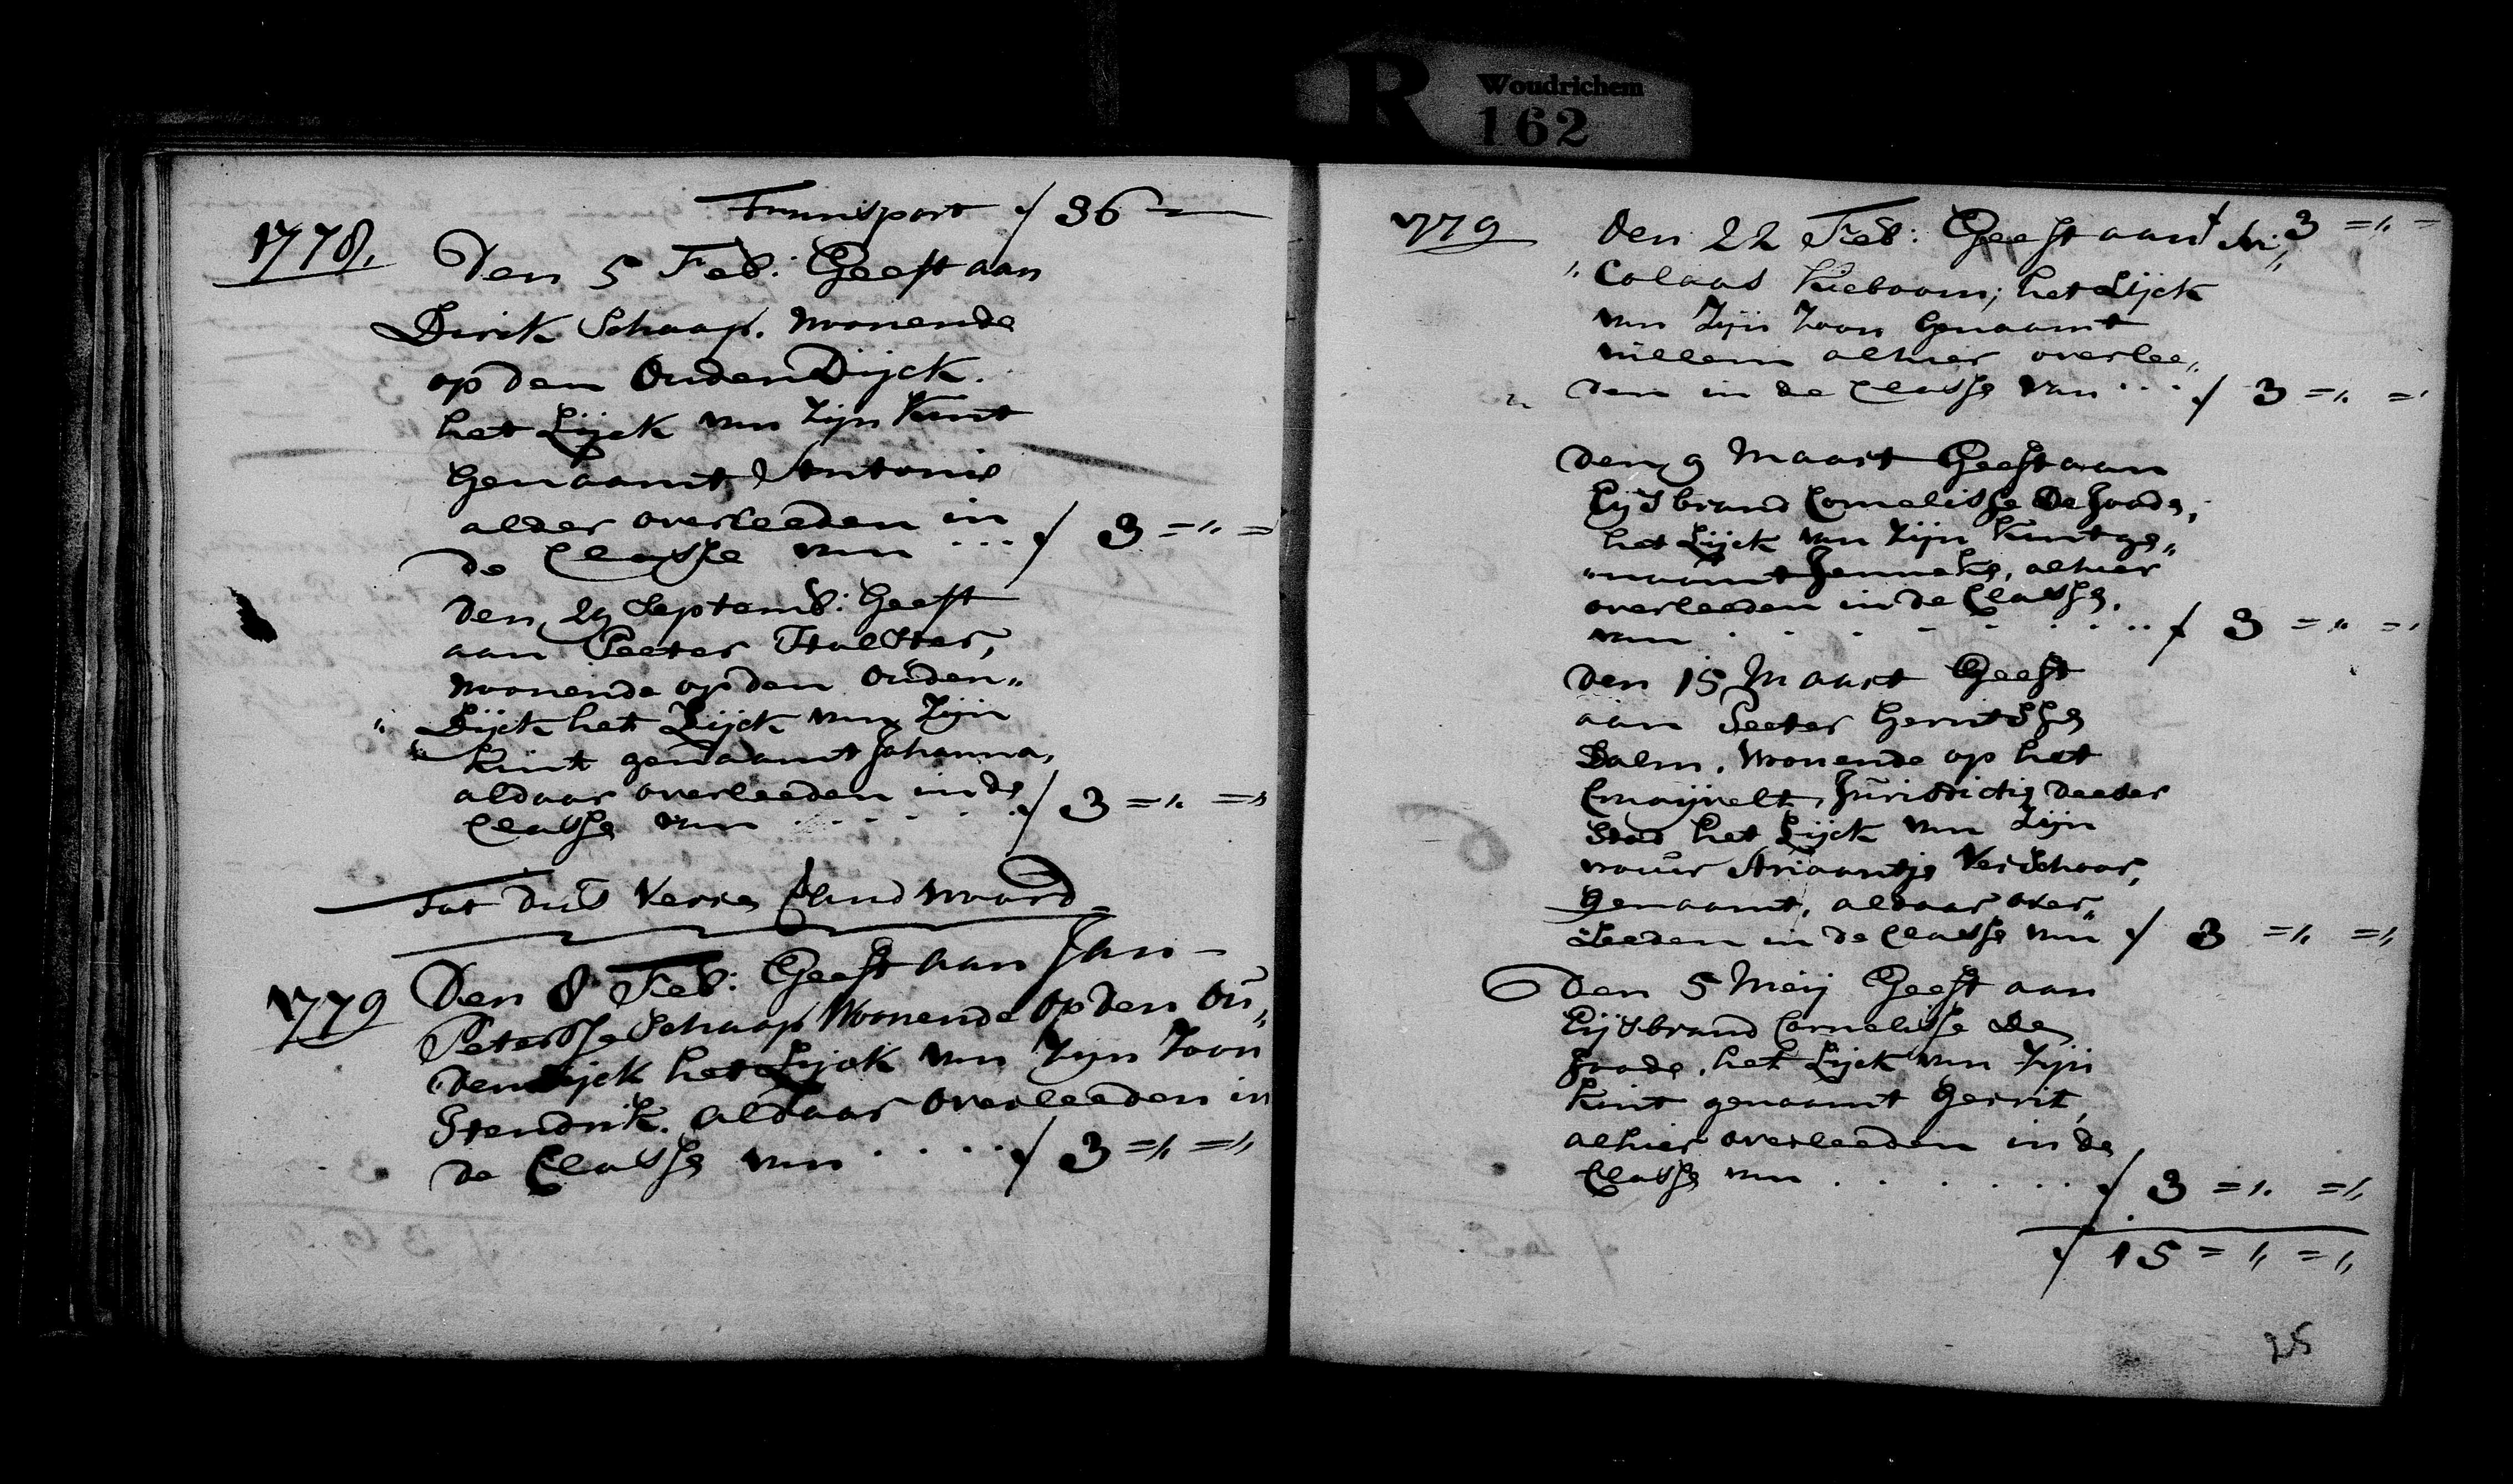 R Woudrichem
162
Transport ƒ 36 —
1778,
Den 5 Feb: Geeft aan
Dirk Schaap. Woonende
op den Ouden Dijck.
het Lijck van Zijn Kint
Genaamt Antonie
alder overleeden in
de Classe van ... ƒ 3 = ,, =
den 29 Septemb: Geeft
aan Peeter
woonende op den ouden„
„ Dijck het Lijck van Zijn
kint genaamt Johanna,
aldaar overleeden in de
Classe van . . . . . . ƒ 3 = ,, = ,,
Tot dus Verre
1779 Den 8 Feb: Geeft aan Jan
Petersse Schaap Woonende op den Ou„
„den Dijck het Lijck van Zijn Zoon
Hendrik. aldaar overleeden in
de Classe van . . . . ƒ 3 = ,, = ,,
1779 Den 22 Feb: Geeft aan Ni„ ƒ 3 = ,, =
„ Colaas Kieboom; het Lijck
van Zijn Zoon Genaamt
willem alhier overlee„
„ den in de Classe van . . . ƒ 3 = ,, = ,,
Den 9 Maart Geeft aan
Eijsbrand Cornelisse De Joode,
het Lijck van Zijn Kint ge„
„naamt Jenneke, alhier
overleeden in de Classe,
van . . . . . . . . ƒ 3 = ,, = ,,
Den 15 Maart Geeft
aan Peeter Gerritsse
Dalm, Woonende op het
Juridictie deeser
Stad het Lijck van Zijn
vrouw Ariaantje Verschoor,
genaamt, aldaar over„
„Leeden in de Classe van ƒ 3 = ,, = ,,
Den 5 Meij Geeft aan
Eijsbrand Cornelisse De
Joode, het Lijck van Zijn
Kint genaamt Gerrit,
alhier overleeden in de
Classe van . . . . . . . ƒ 3 = ,, = ,,
ƒ 15 = ,, = ,,
25